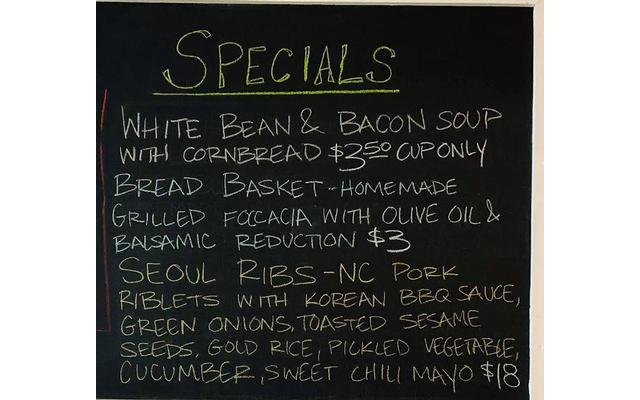 SPECIALS
WHITE BEAN & BACON SOUP
WITH CORNBREAD $3.50 CUP ONLY
BREAD BASKET - HOMEMADE
GRILLED FOCCACIA WITH OLIVE OIL &
BALSAMIC REDUCTION $3
SEOUL RIBS - NC PORK
RIBLETS WITH KOREAN BBQ SAUCE,
GREEN ONIONS, TOASTED SESAME
SEEDS, GOLD RICE, PICKLED VEGETABLE,
CUCUMBER, SWEET CHILI MAYO $18